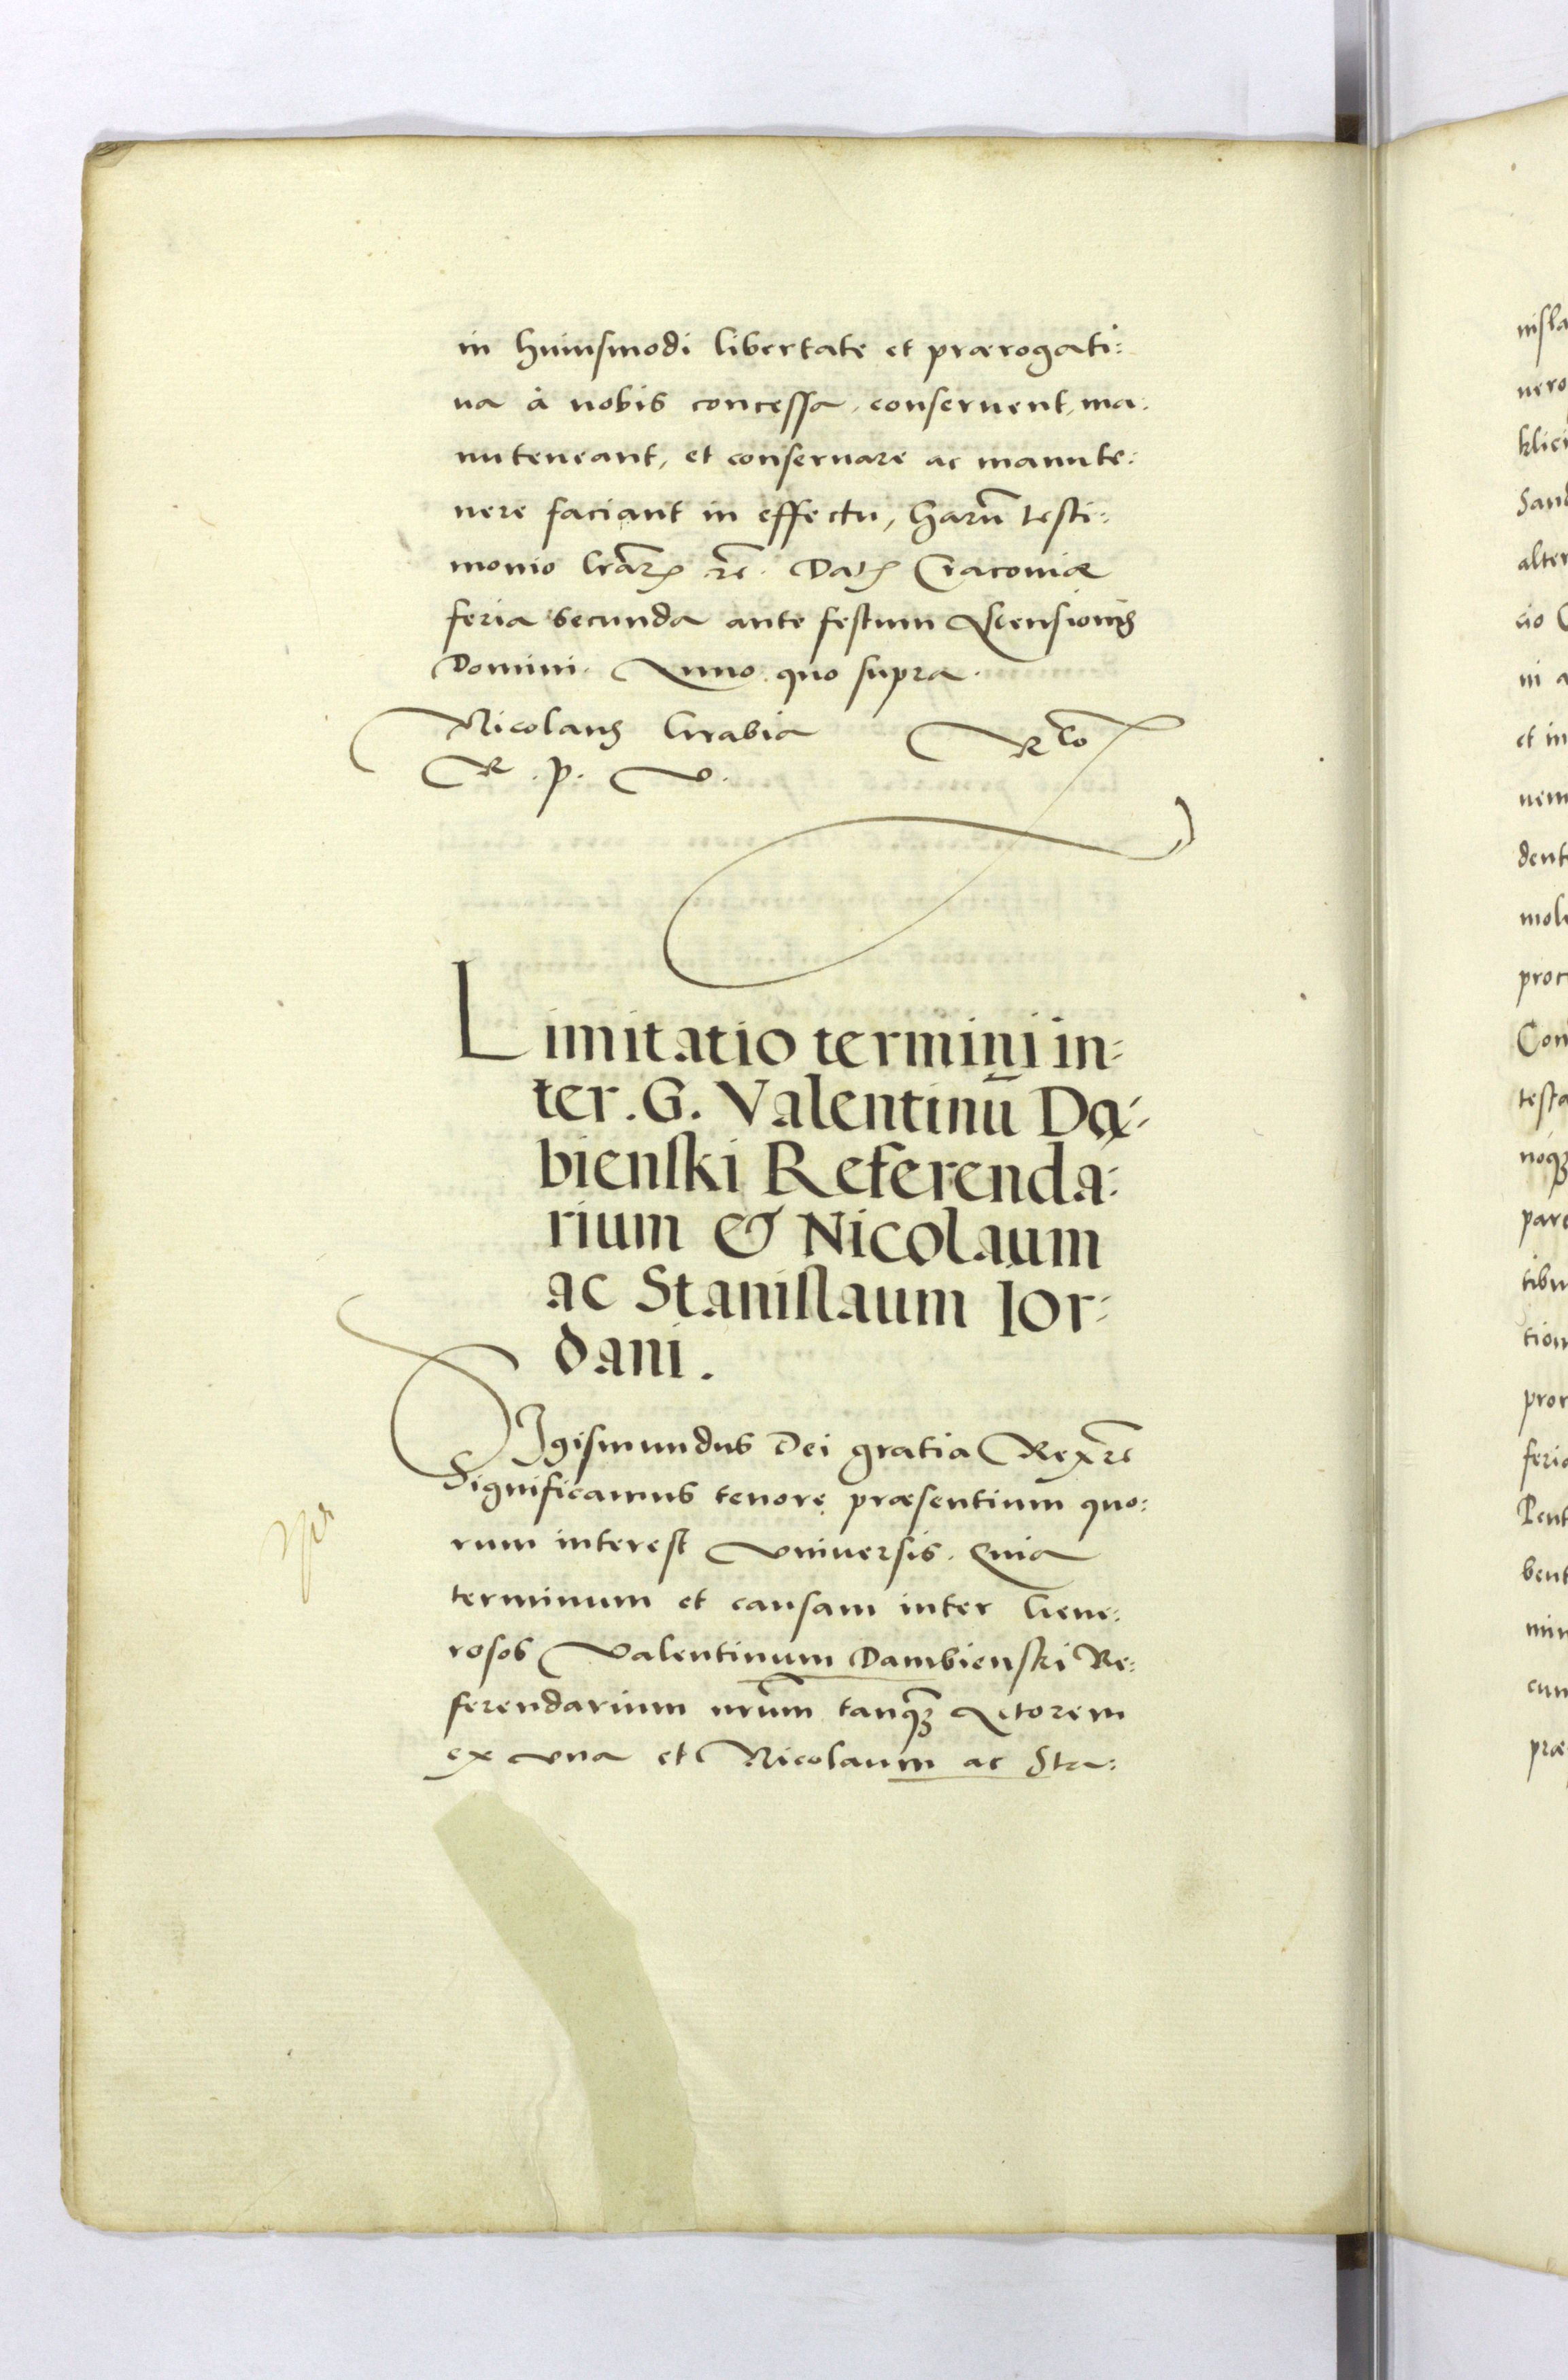 in huiusmodi libertate et prærogati:
ua à nobis concessa, conseruent, ma:
nuteneant, et conseruare ac manute:
nere faciant in effectu, harū testi:
monio lrārꝝ rē. Datꝭ Cracouiæ
feria secunda ante festum Ascensionis
Domini. Anno quo supra.
Nicolaus Grabia
R. P. V.
Limitatio termini in:
ter. G. Valentinū Dą:
bienski Referenda:
rium & Nicolaum
ac Stanislaum Ior:
dani.
Sigismundus Dei gratia Rex rē
Significamus tenore præsentium quo:
rum interest Vniuersis. Quia
terminum et causam inter Gene:
rosos Valentinum Dambienski Re:
ferendarium nrūm tanqꝫ Actorem
ex vna et Nicolaum ac Sta:
nisla
uero
klici
Sand
alter
in a
et in
nem
dent
mole
proc
Con
testa
noqꝫ
pare
tibu
tion
pror
feria
Pent
bent
min
cum
præ